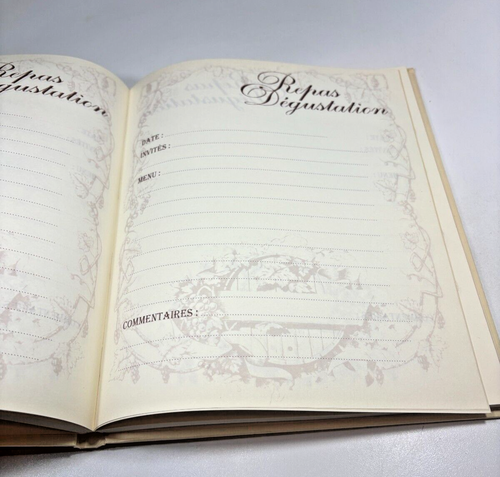 Repas
Dégustation
Repas
Dégustation
DATE :
INVITÉS :
MENU :
COMMENTAIRES :